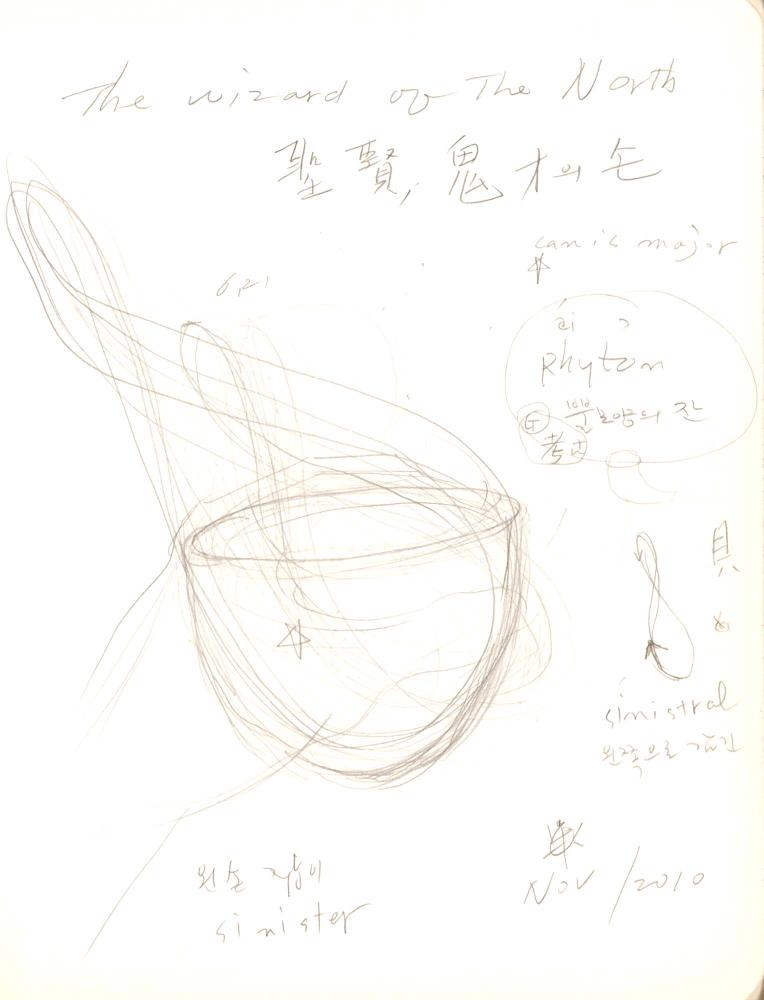 The wizard of The North
聖賢, 鬼才의 손
canis major
ai
Rhyton
뿔모양의 잔
考古
貝
sinistral
왼쪽으로 감긴
왼손잡이
sinister
Nov /2010